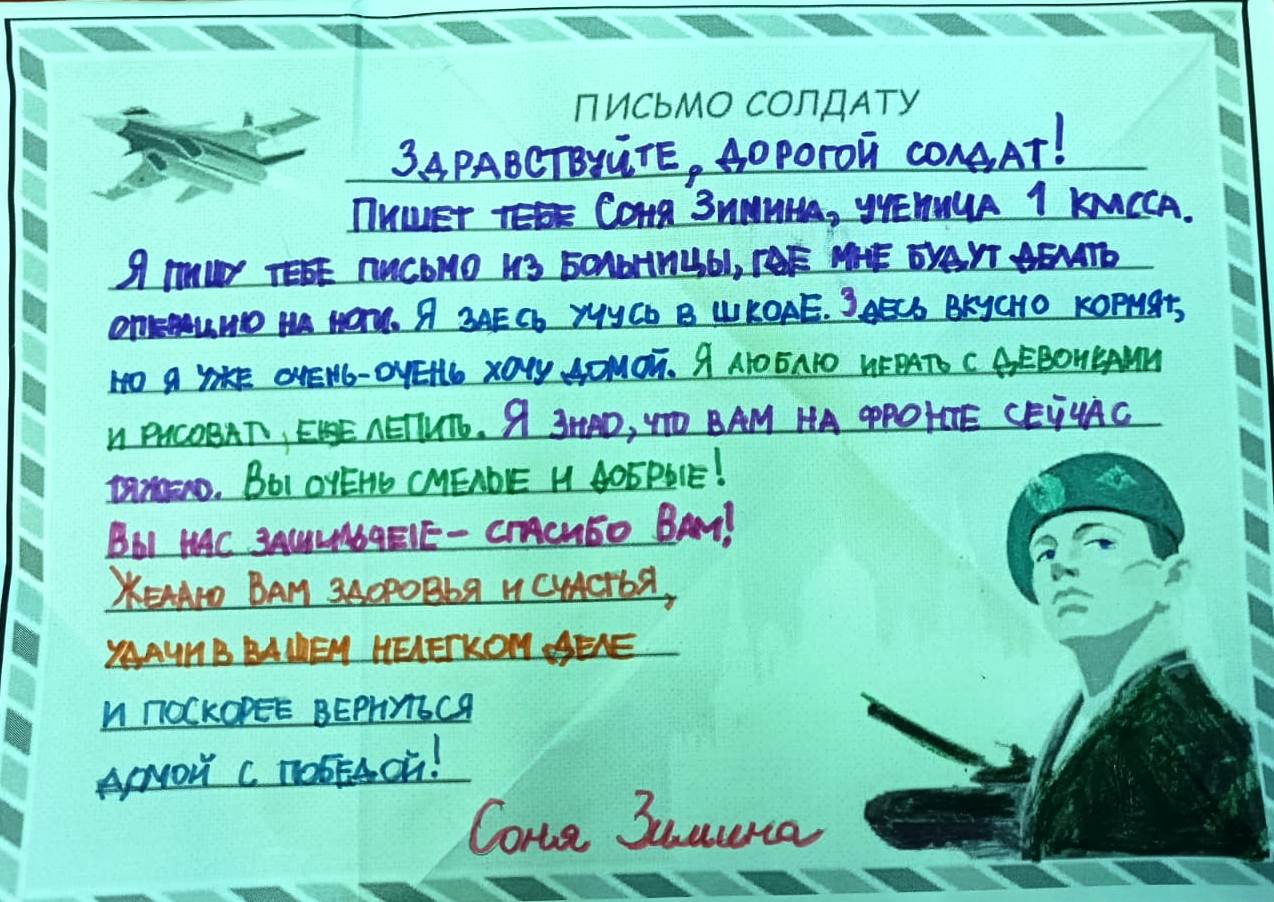 ПИСЬМО СОЛДАТУ
ЗДРАВСТВУЙТЕ, ДОРОГОЙ СОЛДАТ!
ПИШЕТ ТЕБЕ СОНЯ ЗИМИНА, УЧЕНИЦА 1 КЛАССА.
Я ПИШУ ТЕБЕ ПИСЬМО ИЗ БОЛЬНИЦЫ, ГДЕ МНЕ БУДУТ ДЕЛАТЬ
ОПЕРАЦИЮ НА НОГИ. Я ЗДЕСЬ УЧУСЬ В ШКОЛЕ. ЗДЕСЬ ВКУСНО КОРМЯТ,
НО Я УЖЕ ОЧЕНЬ-ОЧЕНЬ ХОЧУ ДОМОЙ. Я ЛЮБЛЮ ИГРАТЬ С ДЕВОЧКАМИ
И РИСОВАТЬ, ЕЩЕ ЛЕПИТЬ. Я ЗНАЮ, ЧТО ВАМ НА ФРОНТЕ СЕЙЧАС
ТЯЖЕЛО. ВЫ ОЧЕНЬ СМЕЛЫЕ И ДОБРЫЕ!
ВЫ НАС ЗАЩИЩАЕТЕ - СПАСИБО ВАМ!
ЖЕЛАЮ ВАМ ЗДОРОВЬЯ И СЧАСТЬЯ,
УДАЧИ В ВАШЕМ НЕЛЕГКОМ ДЕЛЕ
И ПОСКОРЕЕ ВЕРНУТЬСЯ
ДОМОЙ С ПОБЕДОЙ!
Соня Зимина